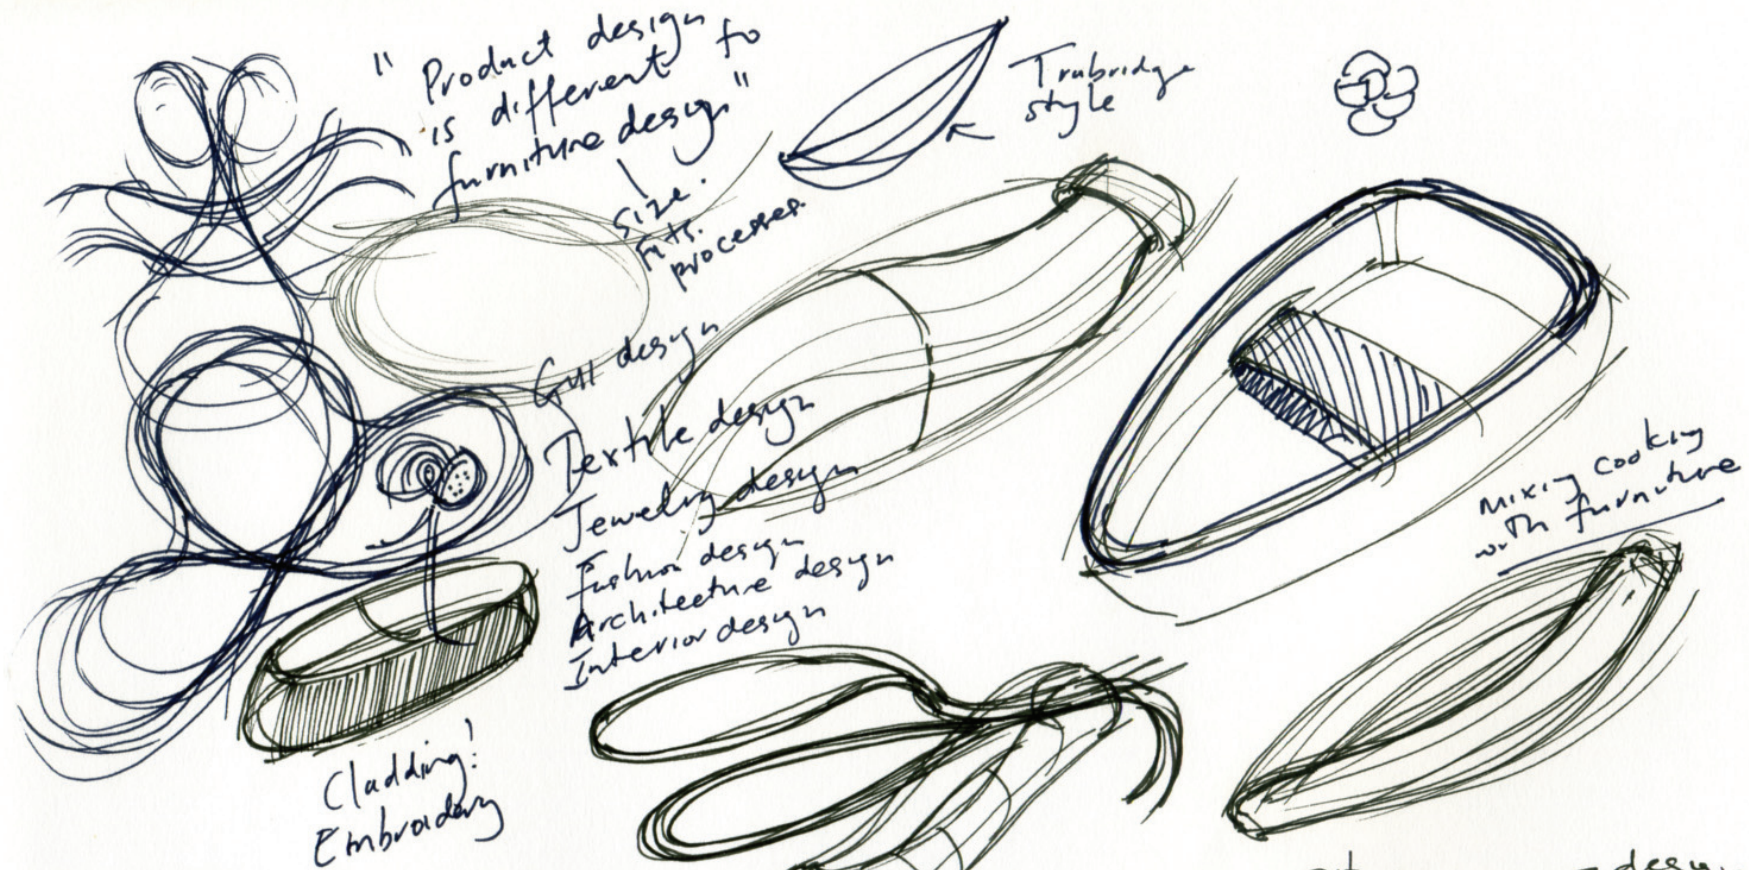 "Product design
is different to
furniture design"
size.
fits.
processes.
Trubridge
style
GUI design
Textile design
Jewelry design
Fashion design
Architecture design
Interior design
mixing cooking
with furniture
Cladding!
Embroidery